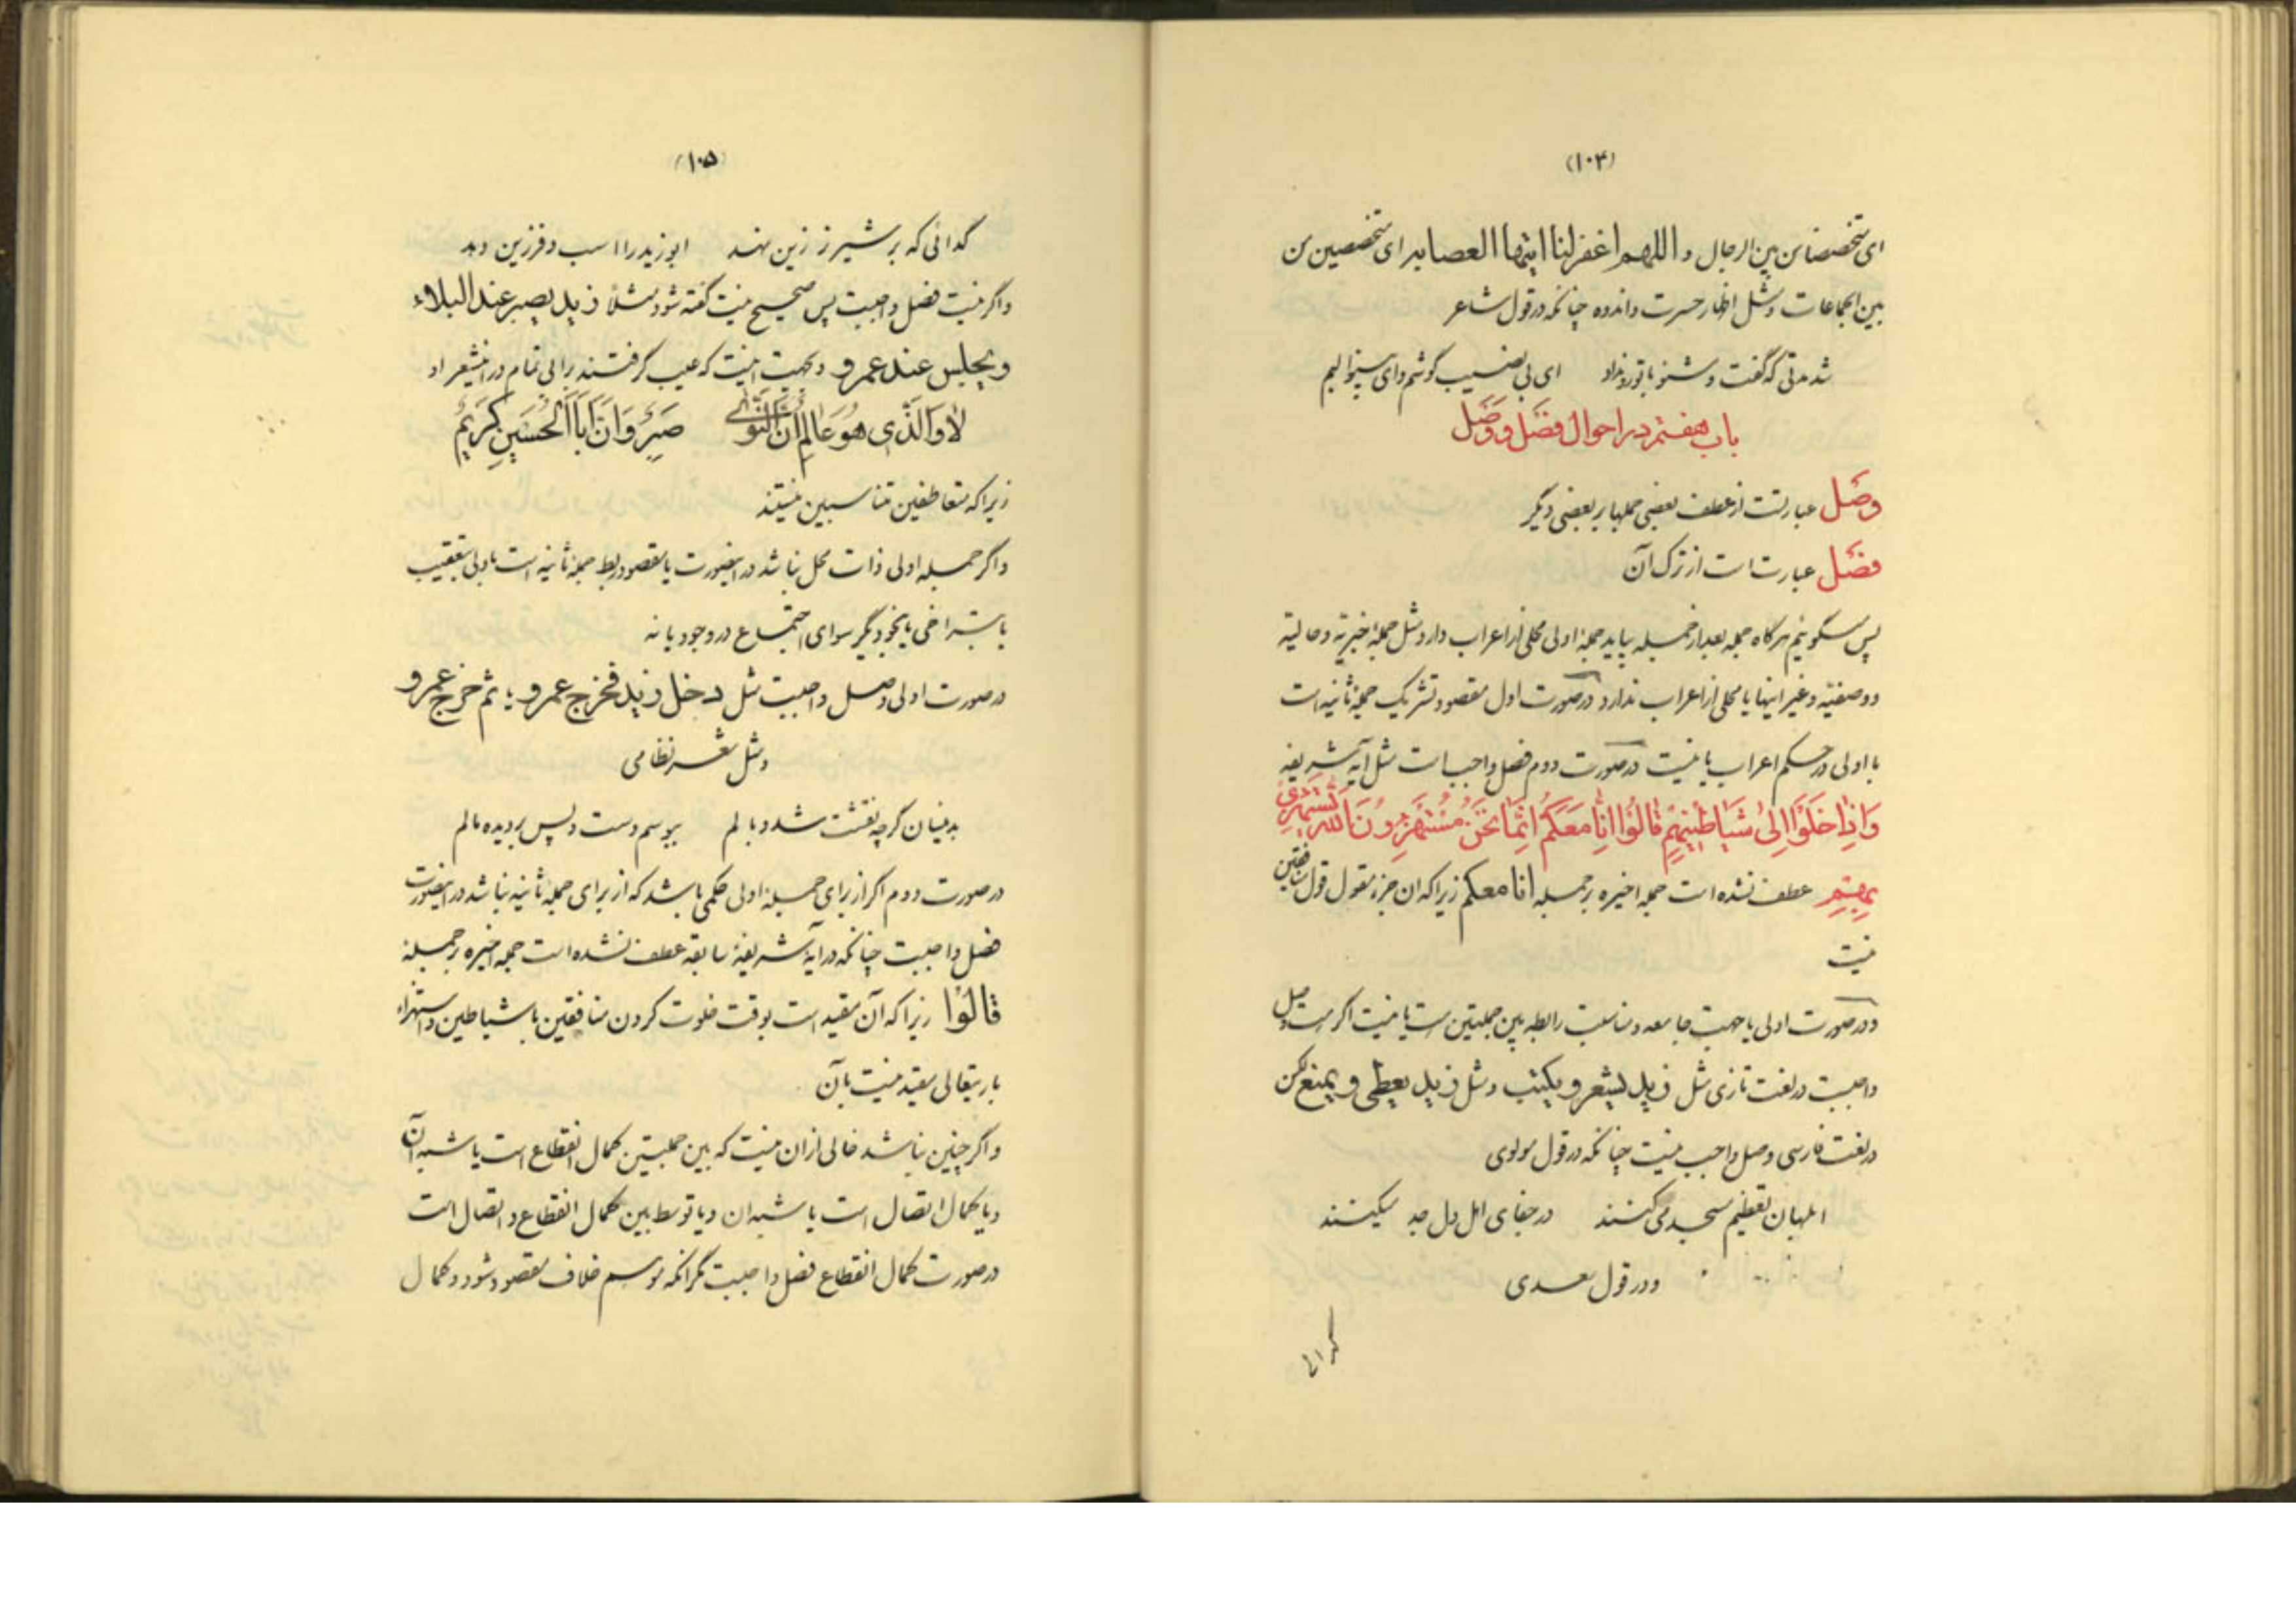 (۱۰۴)
ای متخصصا من بین الرجال و اللهم اغفر لنا ایتها العصابه ای متخصصین من
بین الجماعات و مثل اظهار حسرت و اندوه چنانکه در قول شاعر
شد مدتی که گفت و شنو با تو رو نداد ای بی نصیب گوشم و ای بینوا لبم
باب هفتم در احوال فصل و وصل
وصل عبارتست از عطف بعضی جملها بر بعضی دیگر
فصل عبارت است از ترک آن
پس میگوئیم هرگاه جمله بعد از جمله بیاید جملهٔ اولی محلی از اعراب دارد مثل جملهٔ خبریّه و حالیّه
و وصفیّه و غیر اینها یا محلی از اعراب ندارد در صورت اول مقصود تشریک جملهٔ ثانیه است
با اولی در حکم اعراب یا نیست در صورت دوم فصل واجب است مثل آیه شریفه
وَاِذٰا خَلَوْا اِلیٰ شَیٰاطٖینِهِمْ قٰالُوْا اِنّٰا مَعَکُمْ اِنَّمٰا نَحْنُ مُسْتَهْزِؤُنَ اَللّٰهُ یَسْتَهْزِئُ
بِهِمْ عطف نشده است جمله اخیره بر جمله انا معکم زیرا که ان جزء مقول قول منافقین
نیست
و در صورت اولی یا جهت جامعه و مناسبت رابطه بین جملتین است یا نیست اگر هست وصل
واجبست در لغت تازی مثل زید یشعر و یکتب و مثل زید یعطی و یمنع لکن
در لغت فارسی وصل واجب نیست چنانکه در قول مولوی
ابلهان تعظیم مسجد می کنند در جفای اهل دل جد میکنند
و در قول سعدی
گدائی
(۱۰۵)
گدائی که بر شیر نر زین نهد ابوزید را اسب و فرزین دهد
و اگر نیست فصل واجبست پس صحیح نیست گفته شود مثلاً زید یصبر عند البلاء
و یجلس عند عمرو و بجهت اینست که عیب گرفتند بر ابی تمام در این شعر او
لاٰ وَالَّذٖی هُوَ عٰالِمٌ اَنَّ النَّوٰی صَبِرٌ وَاَنَّ اَبَا الْحُسَیْنِ کَرٖیْمٌ
زیرا که متعاطفین متناسبین نیستند
و اگر جمله اولی ذات محل نباشد در اینصورت یا مقصود ربط جملهٔ ثانیه است باولی بتعقیب
یا بتراخی یا بنحو دیگر سوای اجتماع در وجود یا نه
در صورت اولی وصل واجبست مثل دخل زید فخرج عمرو یا ثم خرج عمرو
و مثل شعر نظامی
بدینسان گرچه نقشت شد وبالم ببوسم دست و پس بر دیده مالم
در صورت دوم اگر از برای جملهٔ اولی حکمی باشد که از برای جملهٔ ثانیه نباشد در اینصورت
فصل واجبست چنانکه در آیهٔ شریفهٔ سابقه عطف نشده است جمله اخیره بر جملهٔ
قالُوْا زیرا که آن مقید است بوقت خلوت کردن منافقین با شیاطین و استهزاء
باریتعالی مقید نیست بآن
و اگر چنین نباشد خالی از ان نیست که بین جملتین کمال انقطاع است یا شبه آن
و یا کمال اتصال است یا شبه ان و یا توسط بین کمال انقطاع و اتصال است
در صورت کمال انقطاع فصل واجبست مگر آنکه موهم خلاف مقصود شود و کمال